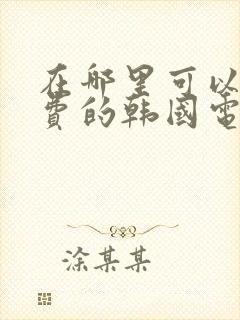 在哪里可以
费的韩国电
涂某某